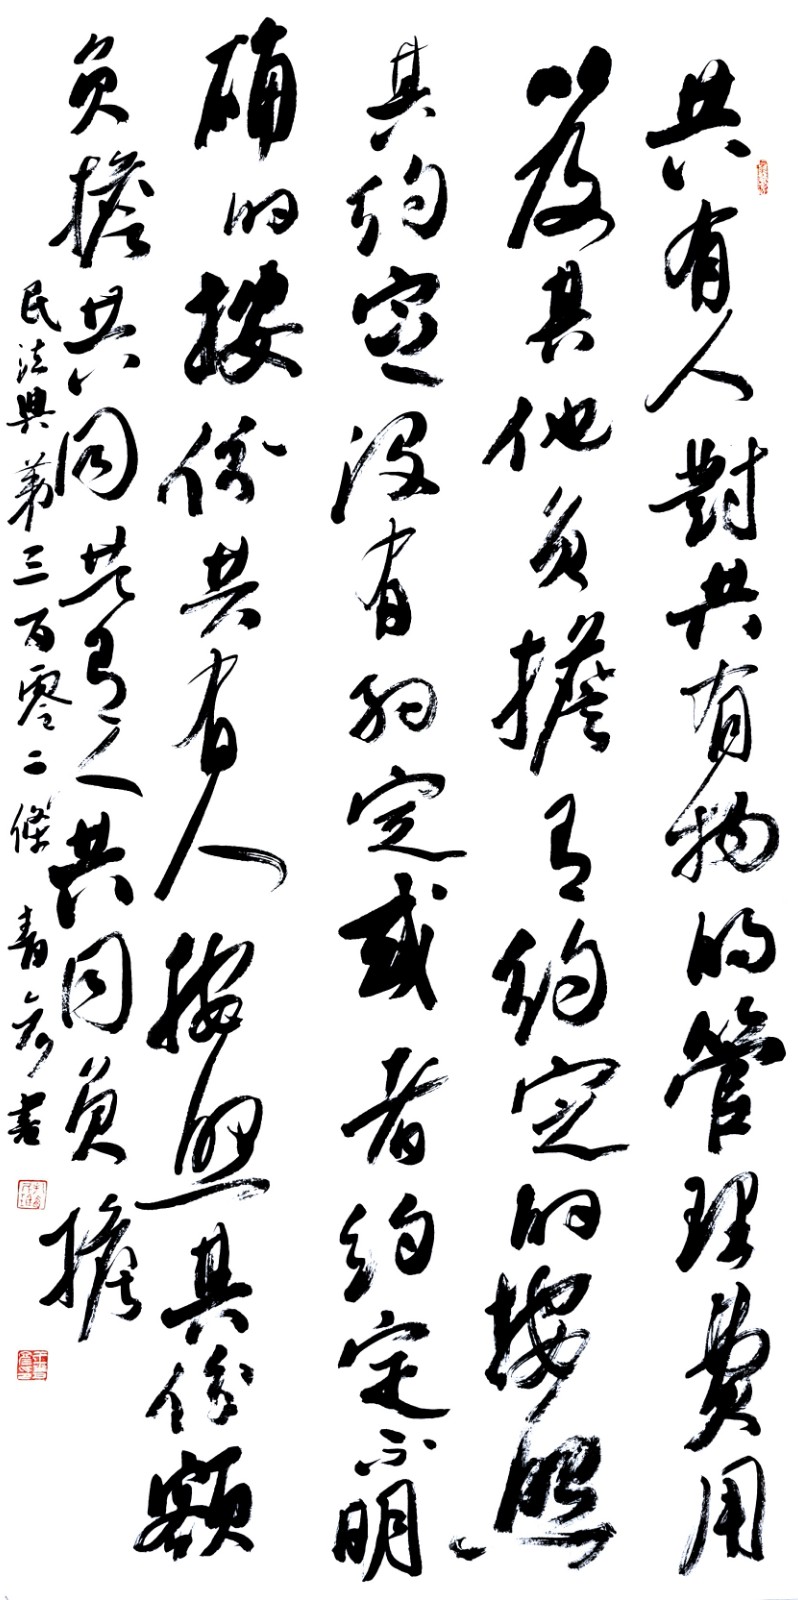 共有人對共有物的管理費用
以及其他負擔有約定的按照
其約定没有約定或者約定不明
确的按份共有人按照其份額
負擔共同共有人共同負擔
民法典第三百零二條 青書